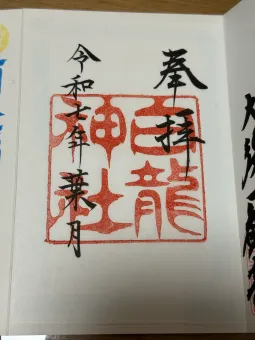 奉拝
白龍神社
令和七年葉月